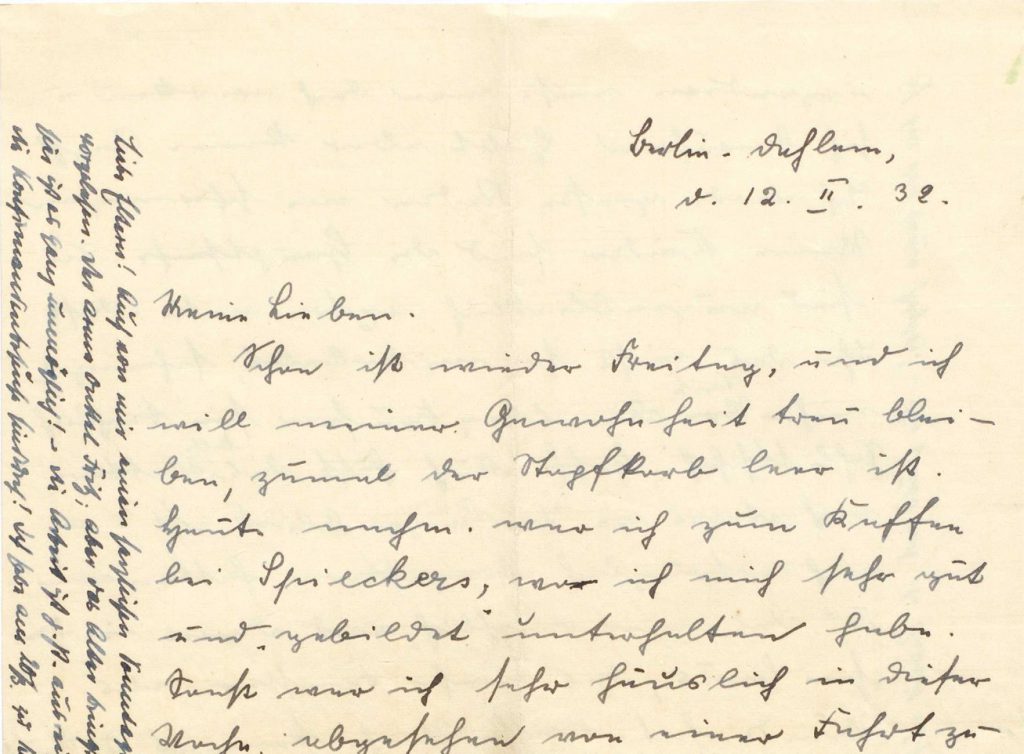 Berlin-Dahlem,
d. 12. II. 32.
Meine Lieben.
Schon ist wieder Freitag, und ich
will meiner Gewohnheit treu blei-
ben, zumal der Stopfkorb leer ist.
Heute nachm. war ich zum Kaffee
bei Spieckers, wo ich mich sehr gut
und gebildet unterhalten habe.
Sonst war ich sehr häuslich in dieser
Woche, abgesehen von einer Fahrt zu
Liebe Eltern! Auch von mir einen herzlichen Sonntags
der arme Onkel Fritz; aber das Alter bringt
für ist es ganz unmöglich! – die Arbeit ist z. Zt.
die Ich habe zu